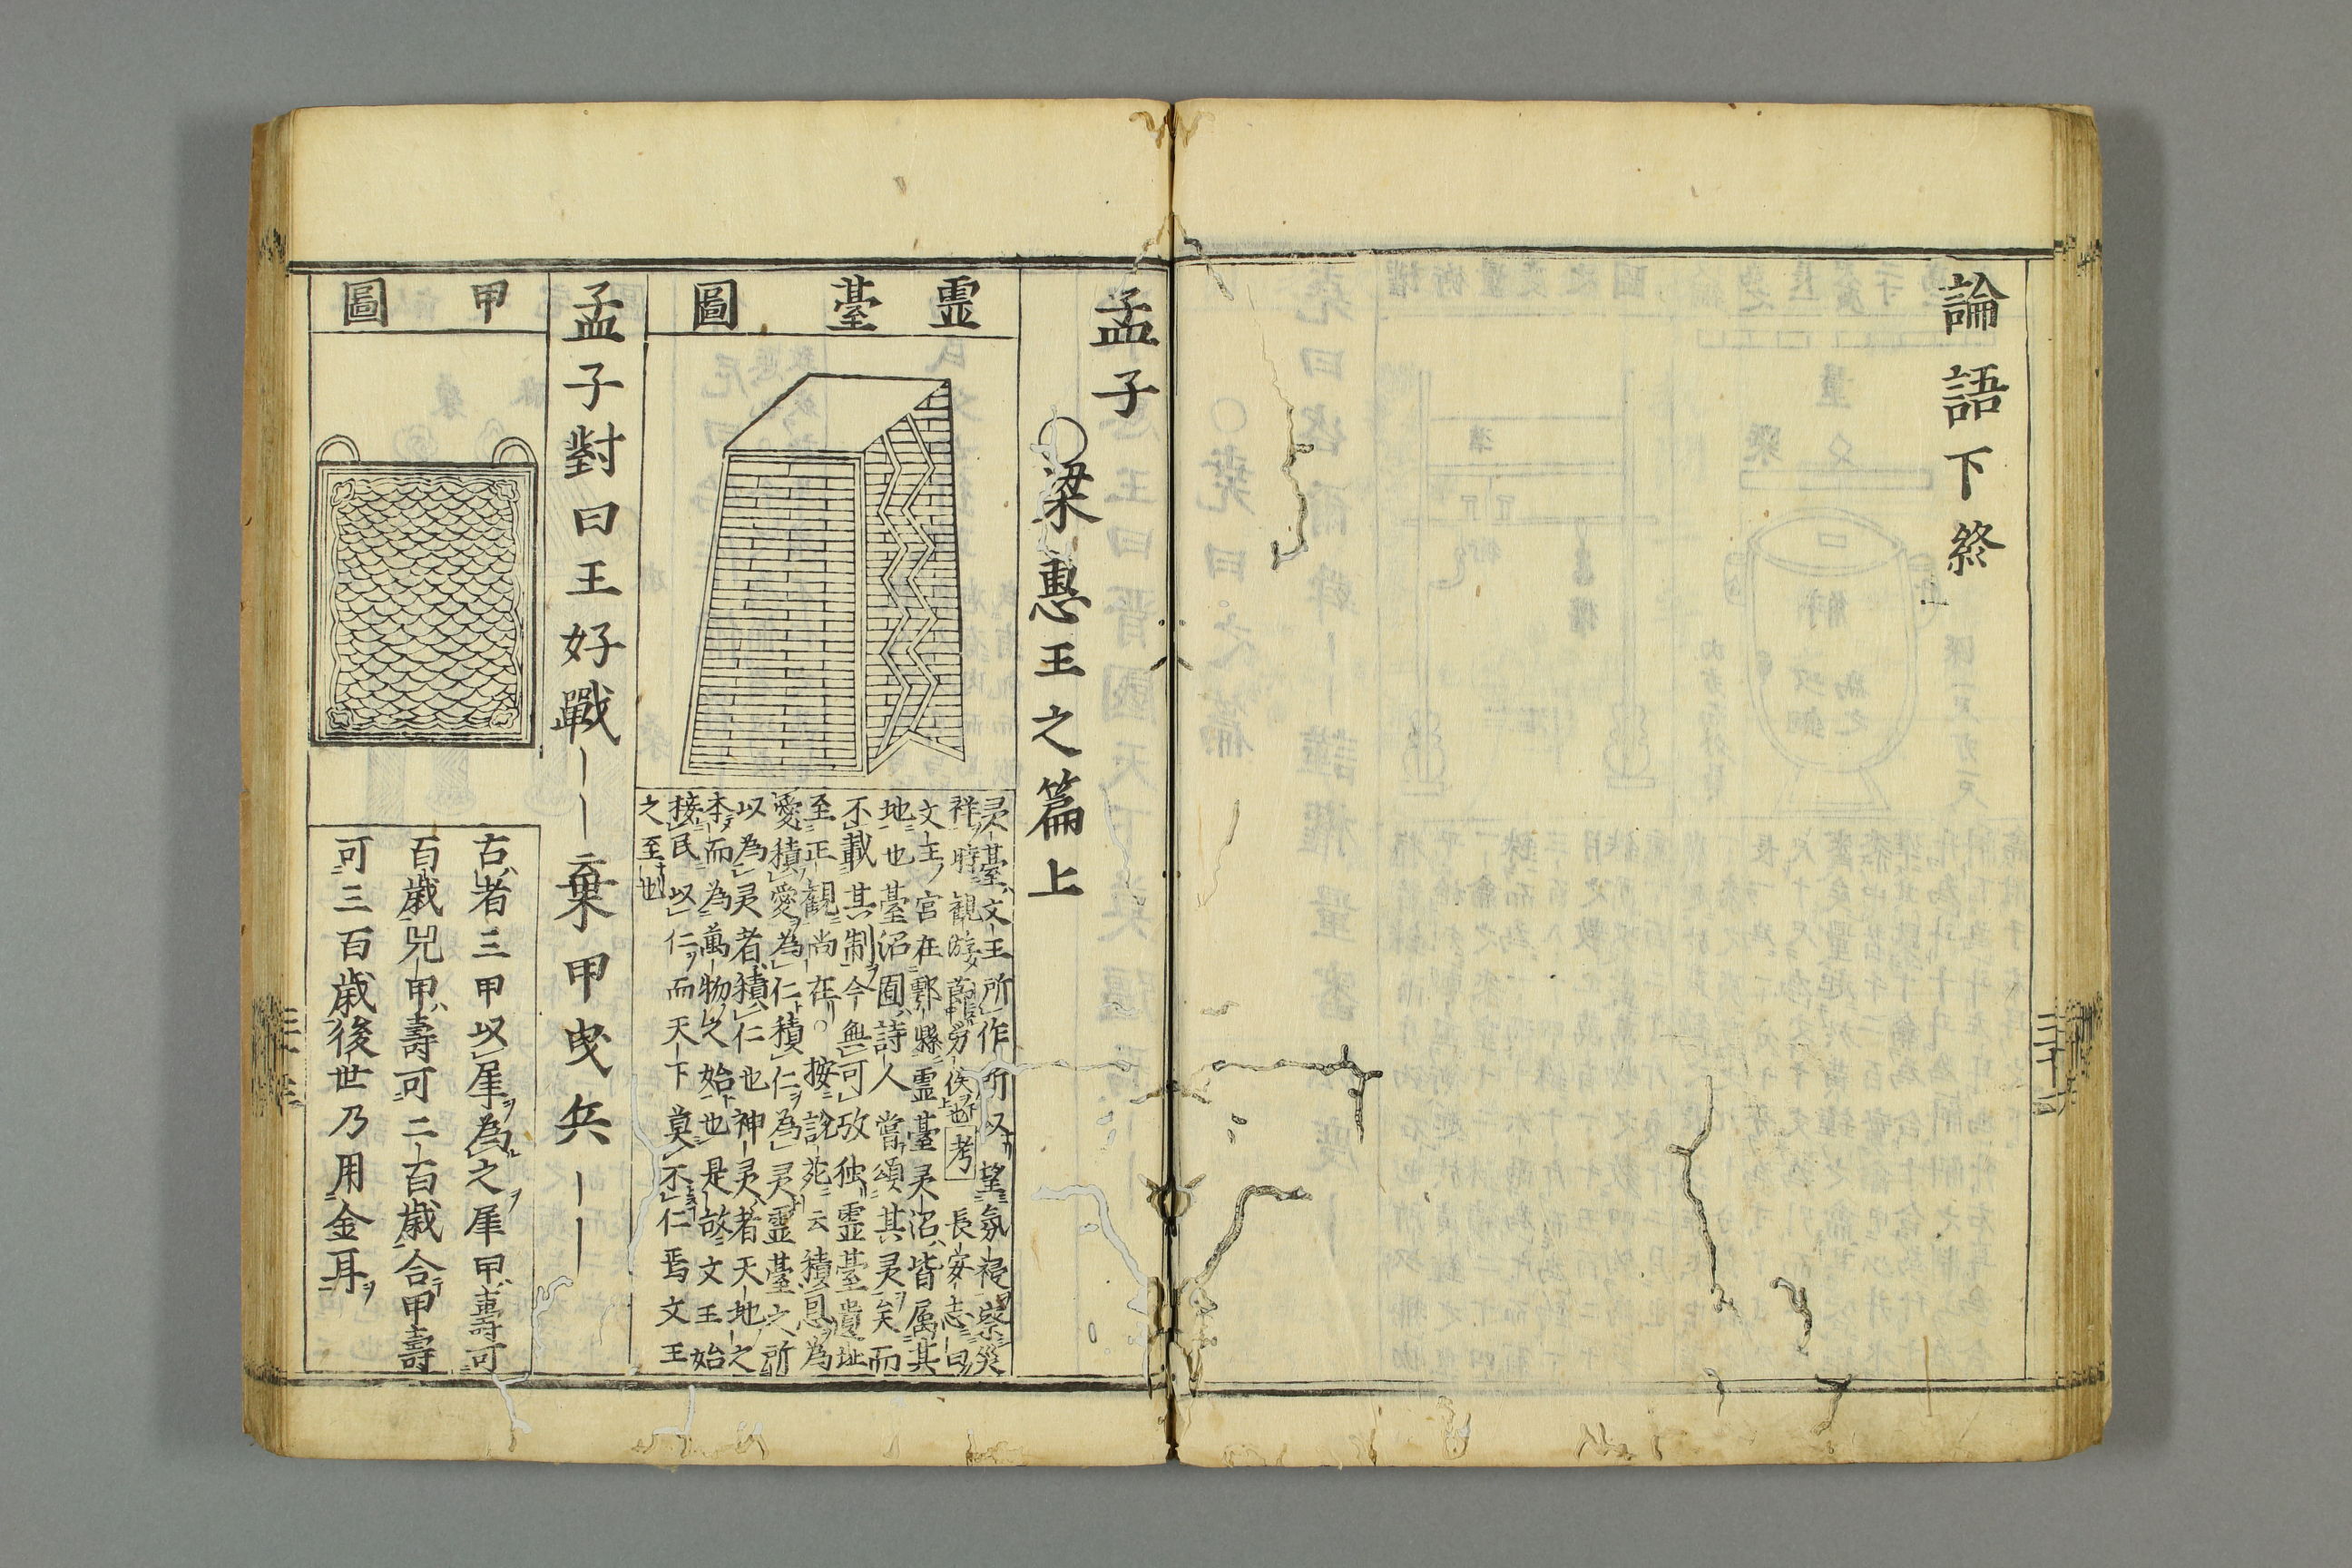 論語下終
孟子
○梁惠王之篇上
霊臺圖
灵臺文王所作所以望氛祲察災
祥時觀游節勞佚也考長安志曰
文王宮在鄠縣霊臺灵沼皆属其
地也臺沼囿詩人嘗頌其灵矣而
不載其制今無可攷独霊臺遺址
至正観尚在○按說苑云積恩為
愛積愛為仁積仁為灵霊臺之所
以為灵者積仁也神灵者天地之
本而為萬物之始也是故文王始
接民以仁而天下莫不仁焉文王
之至也
孟子對曰王好戰――棄甲曳兵――
甲圖
古者三甲以犀為之犀甲壽可
百歳兕甲壽可二百歳合甲壽
可三百歳後世乃用金耳